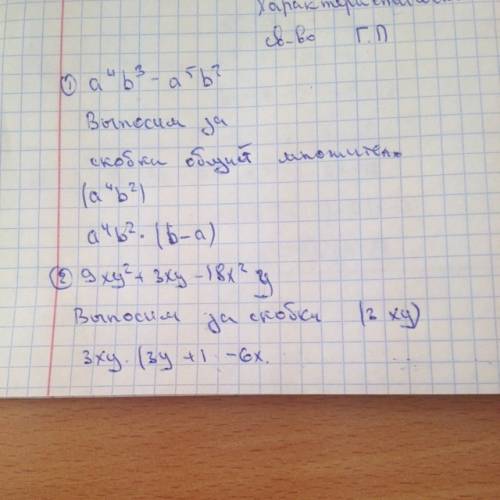 Характеристическое
св-во Г.П
① a⁴b³ - a⁵b²
Выносим за
скобки общий множитель
(a⁴b²)
a⁴b² · (b-a)
② 9xy² + 3xy - 18x² y
Выносим за скобки (3 xy)
3xy · (3y + 1 - 6x.